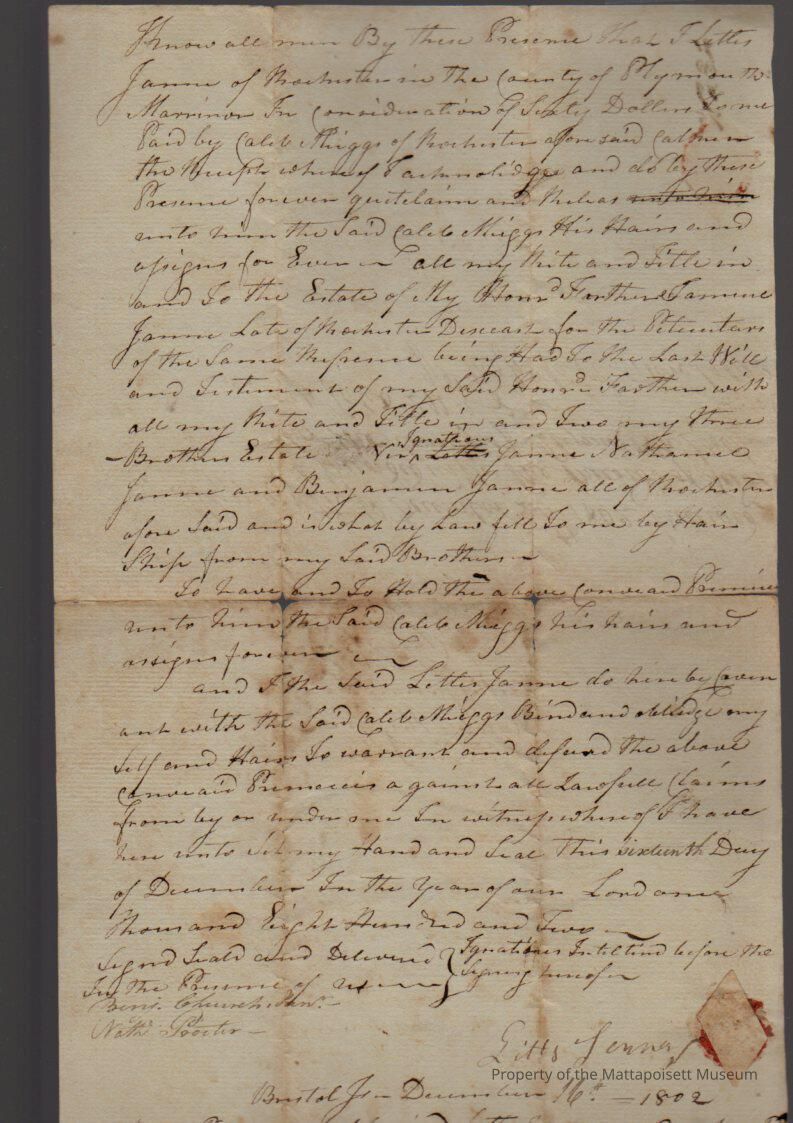 Know all men By these Presence that I Lettis
Janne of Rochester in the County of Plymouth
Marrinor In Consideration of Sixty Dollers to me
Paid by Caleb Miggs of Rochester afore said
the whereof I acknolidge and do by these
Presence forever quitclaim and Releas unto him
unto him the Said Caleb Miggs His Hairs and
assigns for Ever all my Rite and Title in
and To the Estate of My Honrd Farther
Janne Late of Rochester Deceast for the
of the Same Refrence being Had To the Last Will
and Testement of my Said Honrd Farther with
all my Rite and Title in and Two my three
Brothers Estate Viz Ignatious Lettis Janne Nathaniel
Janne and Benjamin Janne all of Rochester
afore Said and is what by Law fell To me by Hair
Ship from my Said Brothers
To have and To Hold the above Conveaid
unto him the Said Caleb Miggs his hairs and
assigns forever
and I the Said Lettis Janne do hereby Coven
ant with the Said Caleb Miggs Bind and oblidge my
self and Hairs To warrant and defend the above
Conveaid a gainst all Lawfull Claims
from by or under me In witness whereof I have
here unto Set my Hand and Seal This sixteenth Day
of December In the Year of our Lord one
thousand Eight Hundred and Two
Signd Seald and Delivered Ignatious before the
In the Presence of us Signing hereof
Benj. Church
Nathl Procter
Letts Jenney
Property of the Mattapoisett Museum
Bristol Ss December 16th 1802